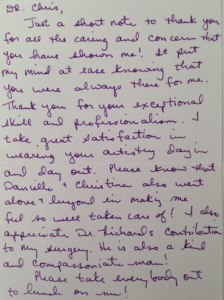 Dr. Chris,
Just a short note to thank you
for all the caring and concern that
you have shown me! It put
my mind at ease knowing that
you were always there for me.
Thank you for your exceptional
skill and professionalism. I
take great satisfaction in
wearing your artistry day in
and day out. Please know that
Danielle & Christina also went
above & beyond in making me
feel so well taken care of! I also
appreciate Dr. Richard's contribution
to my surgery. He is also a kind
and compassionate man!
Please take everybody out
to lunch on me!